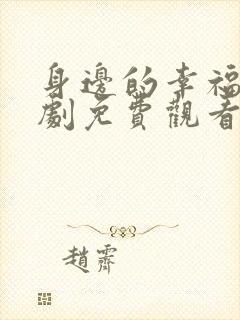 身邊的幸福
劇免費觀看
趙霽